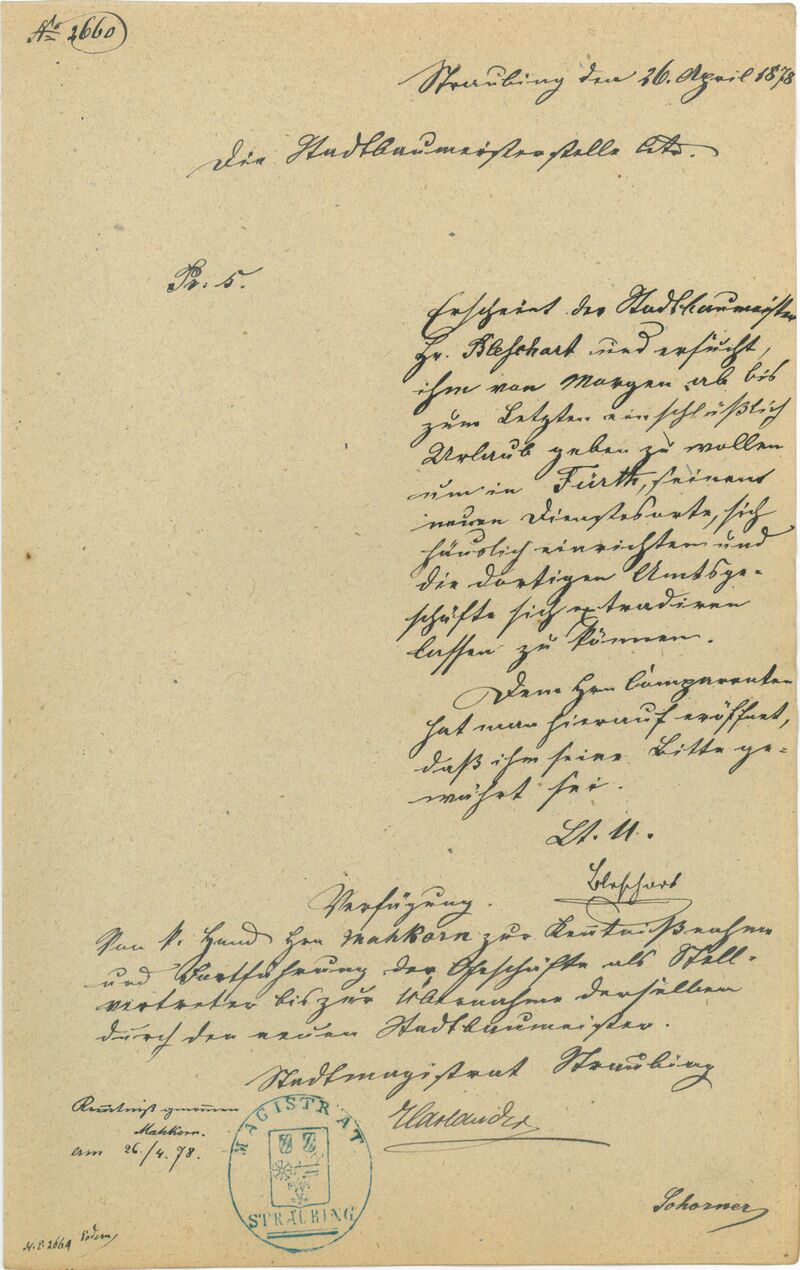 No 2660
Straubing den 26. April 1878
Die Stadtbaumeisterstelle btr.
Pr. 5.
Erscheint der Stadtbaumeister
Hr. Bleschart und ersucht,
ihm von Morgen ab bis
zum Letzten einschlüßlich
Urlaub geben zu wollen
um in Fürth, seinem
neuen Dienstesorte, sich
häuslich einrichten und
die dortigen Amtsge-
schäfte sich extradiren
lassen zu können.
Dem Hrn Comparenten
hat man hierauf eröffnet,
daß ihm seine Bitte ge-
währt sei.
Lt. U.
Bleschart
Verfügung.
Hand Hrn Mahkorn zur Kenntnißnahme
und Fortführung der Geschäfte als Stell-
vertreter bis zur Übernahme derselben
durch den neuen Stadtbaumeister.
Stadtmagistrat Straubing
Harlander
Kenntniß genommen
Mahkorn.
am 26./4. 78.
MAGISTRAT
STRAUBING
Schorner
2664